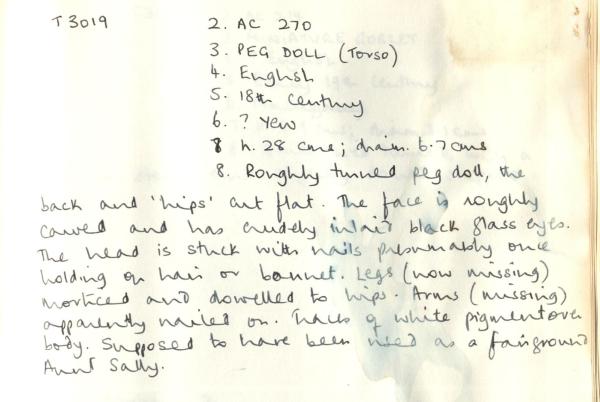 T 3019 2. AC 270
3. PEG DOLL (Torso)
4. English
5. 18th Century
6. ? Yew
8 h. 28 cms; diam. 6.7 cms
8. Roughly turned peg doll, the
back and 'hips' cut flat. The face is roughly
carved and has crudely inlaid black glass eyes.
The head is stuck with nails presumably once
holding on hair or bonnet. Legs (now missing)
morticed and dowelled to hips. Arms (missing)
apparently nailed on. Traces of white pigment over
body. Supposed to have been used as a fairground
Aunt Sally.